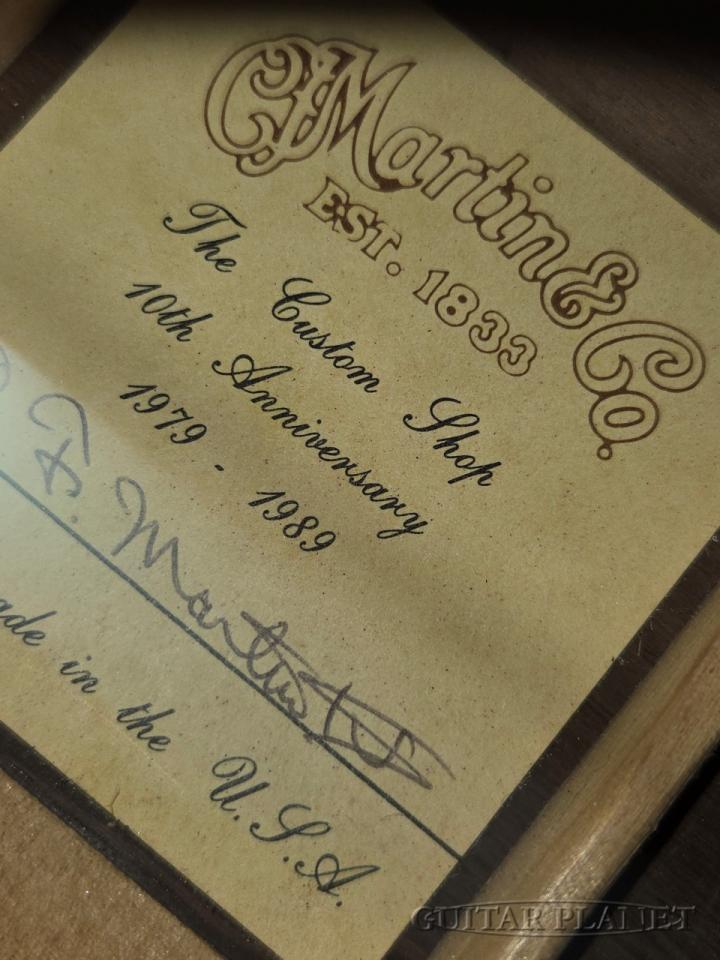 CF Martin & Co.
EST. 1833
The Custom Shop
10th Anniversary
1979 - 1989
F. Martin IV
ade in the U.S.A.
GUITAR PLANET